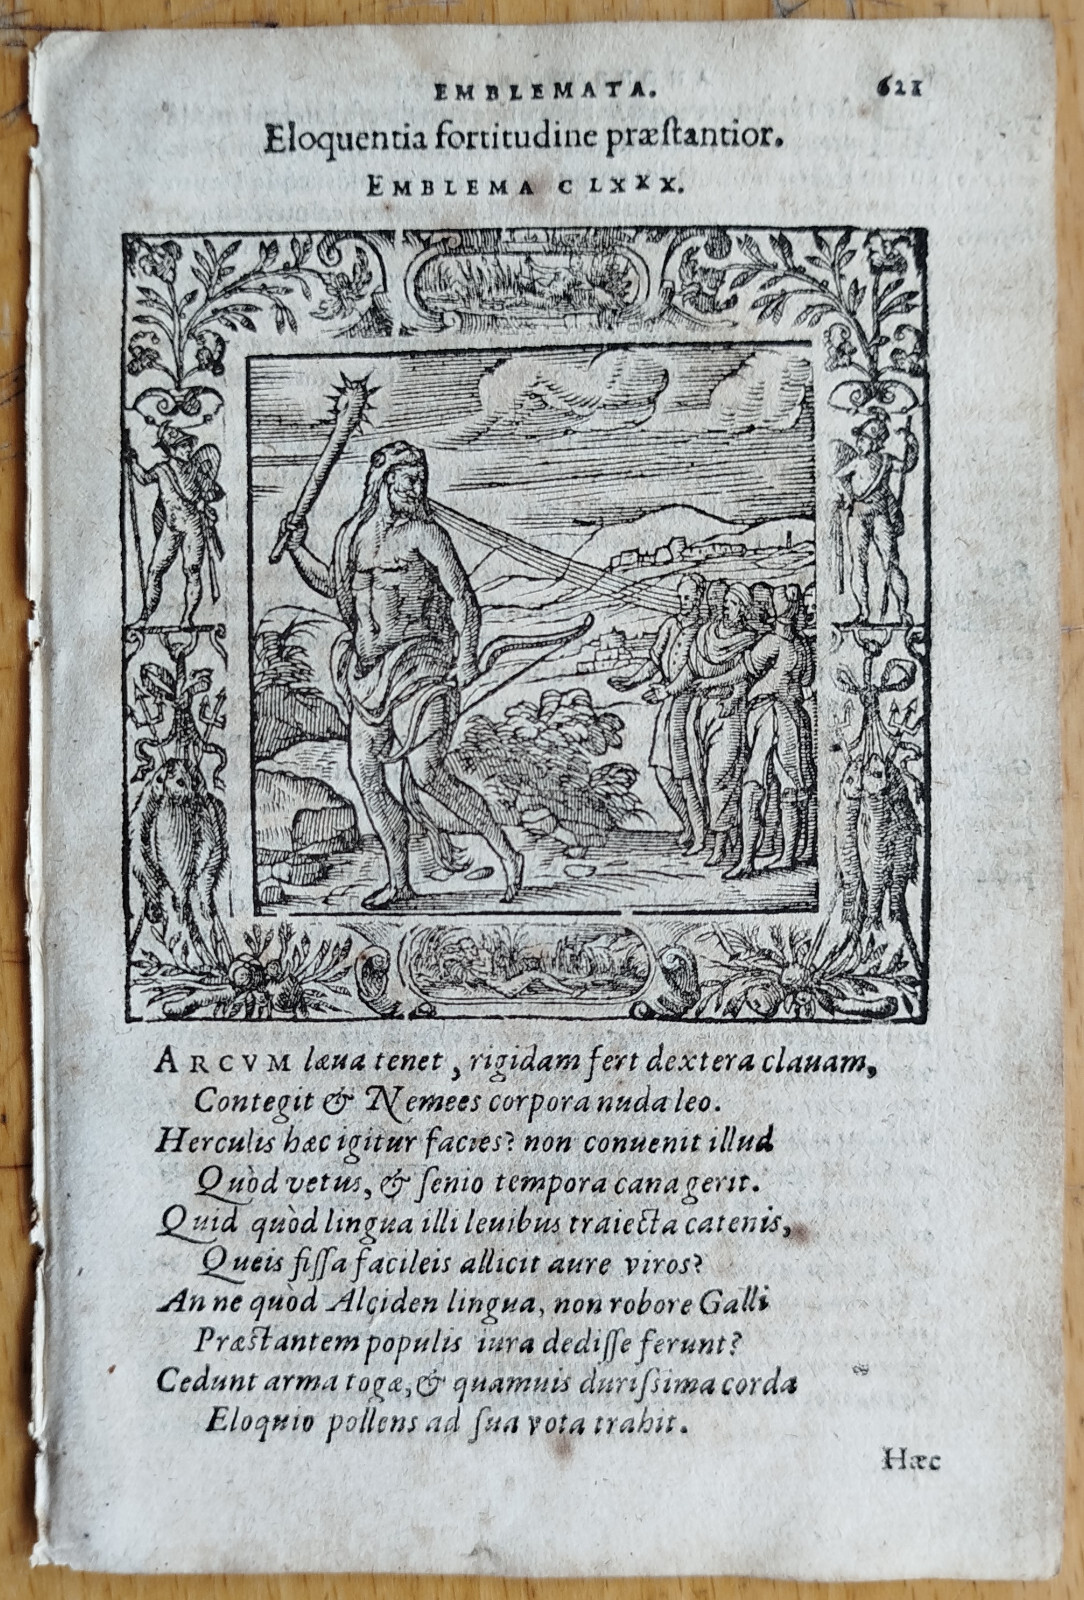 EMBLEMATA. 621
Eloquentia fortitudine præſtantior.
EMBLEMA CLXXX.
ARCVM læua tenet, rigidam fert dextera clauam,
Contegit & Nemees corpora nuda leo.
Herculis hæc igitur facies? non conuenit illud
Quòd vetus, & ſenio tempora cana gerit.
Quid quòd lingua illi leuibus traiecta catenis,
Queis fiſſa facileis allicit aure viros?
An ne quòd Alciden lingua, non robore Galli
Præstantem populis iura dediſſe ferunt?
Cedunt arma togæ, & quamuis duriſsima corda
Eloquio pollens ad ſua vota trahit.
Hæc